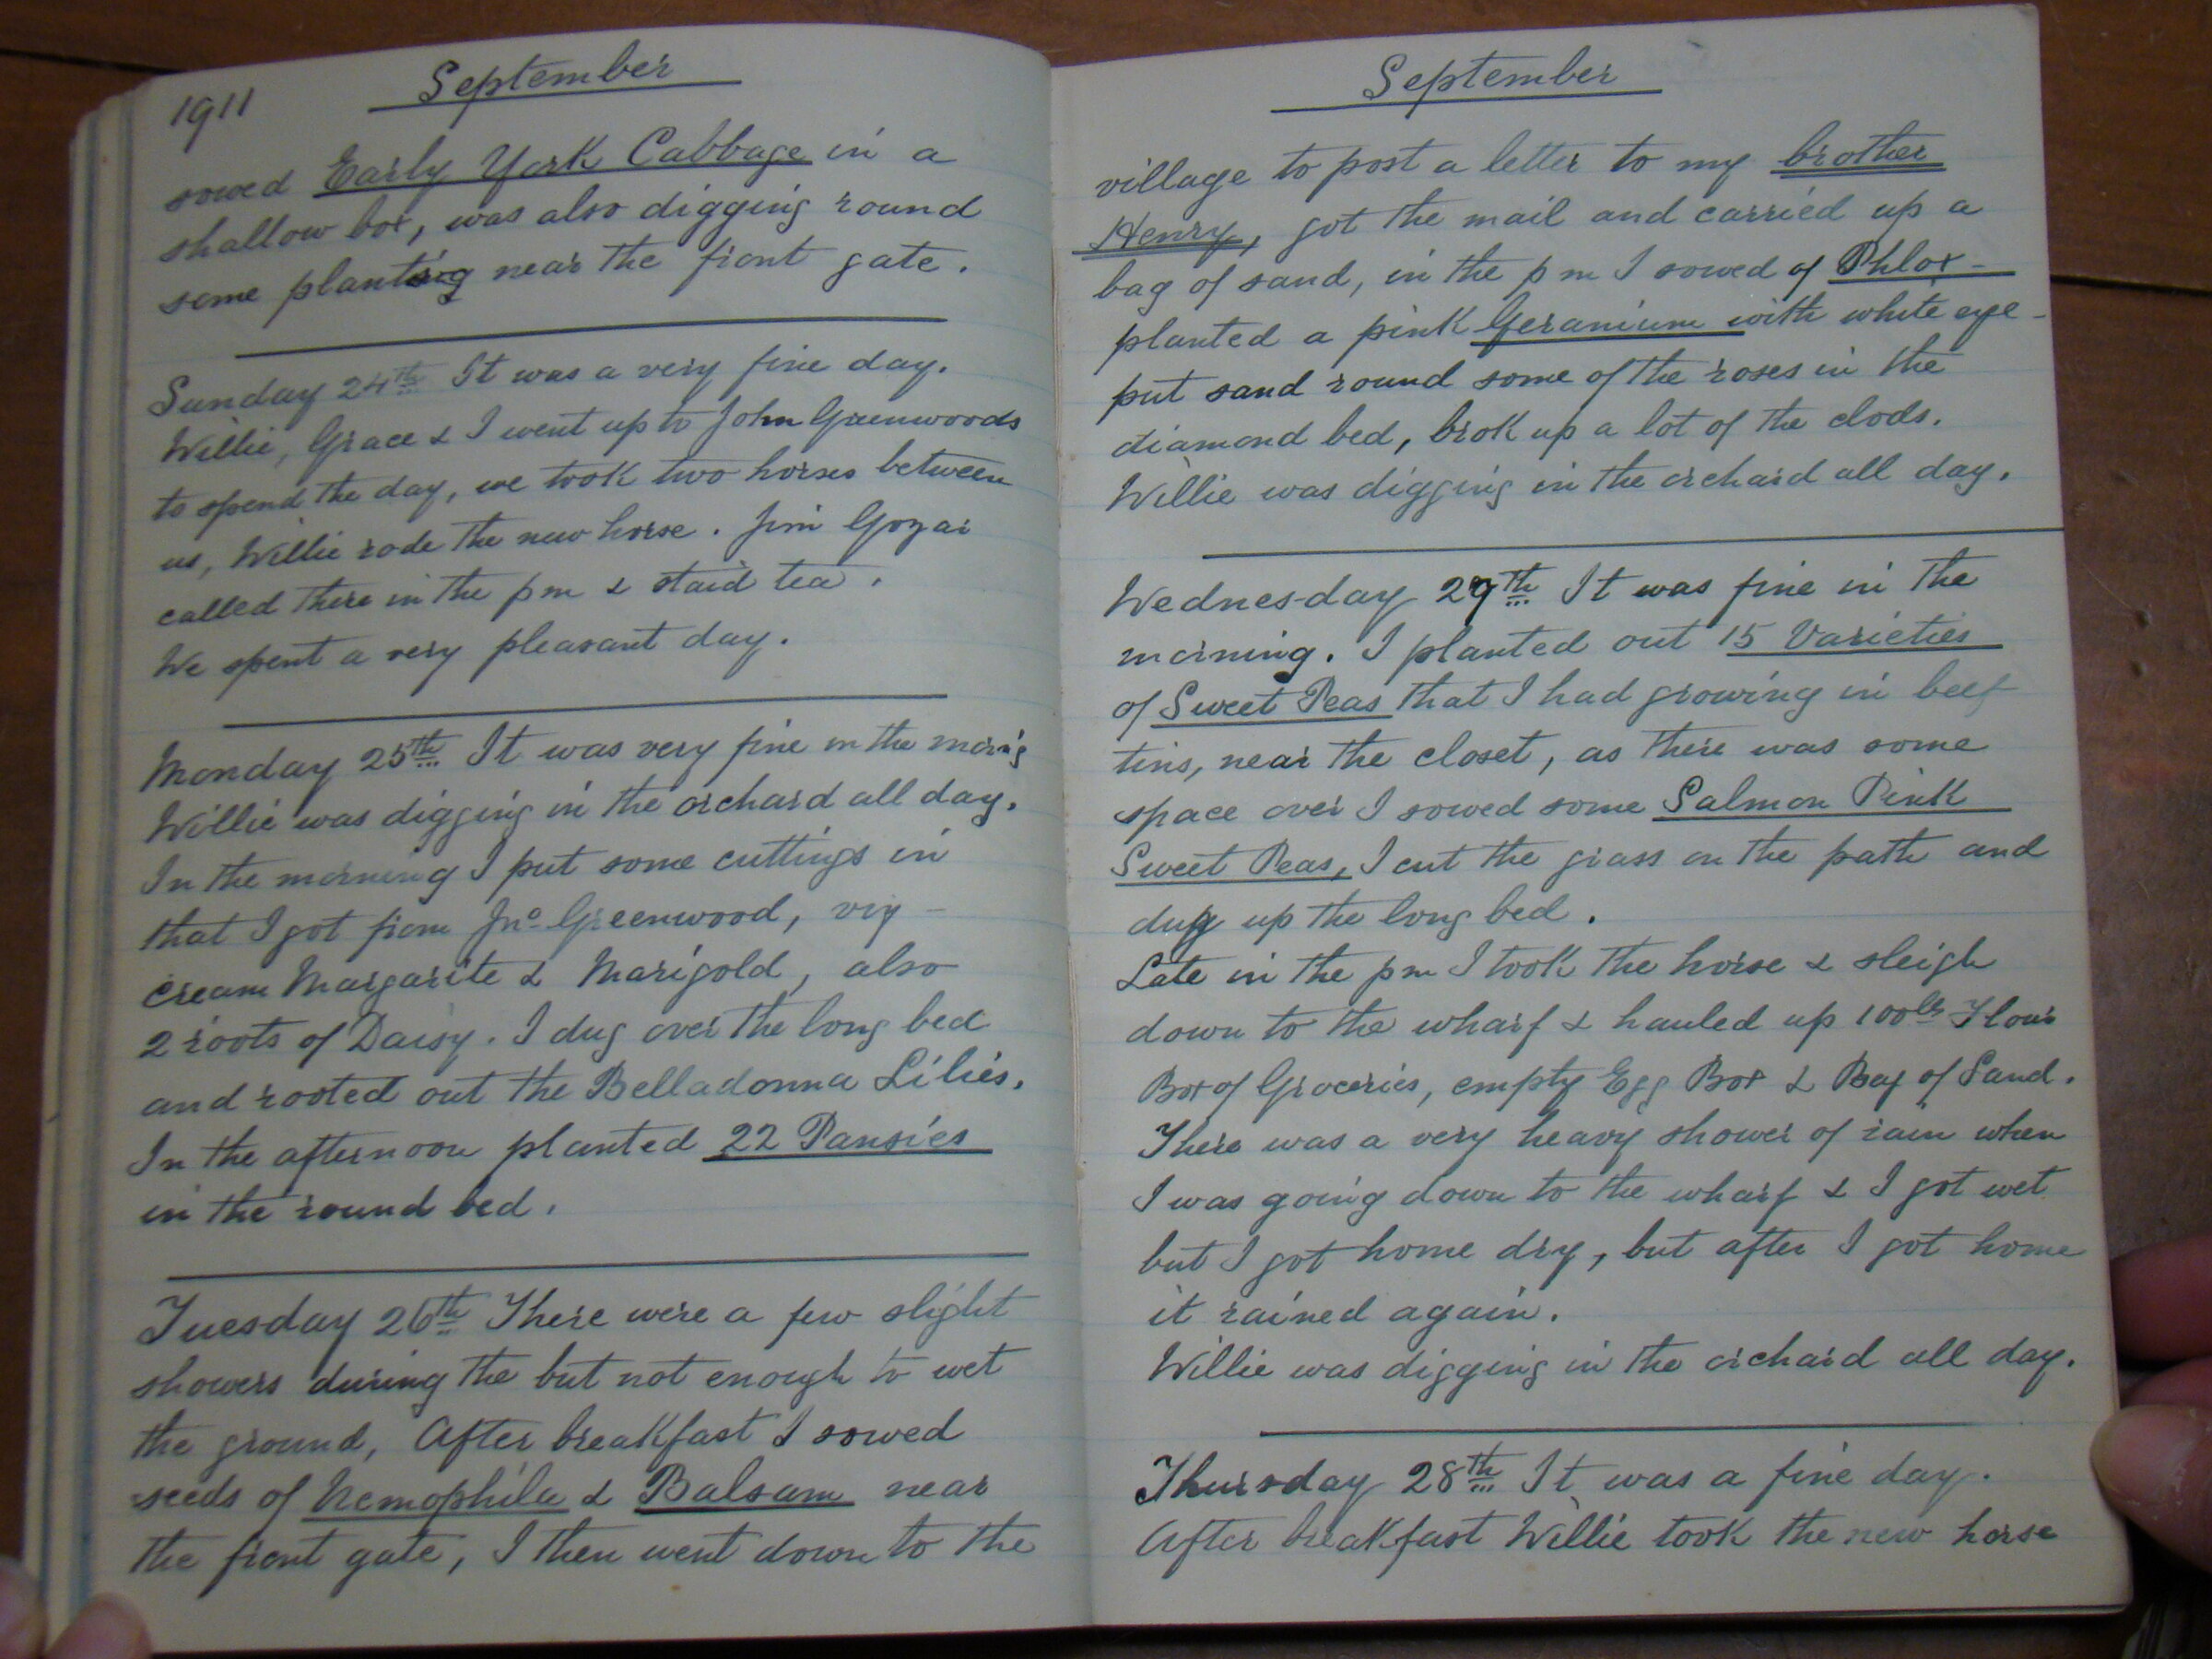 1911
September
sowed Early York Cabbage in a
shallow box, was also digging round
some planting near the front gate.
Sunday 24th It was a very fine day.
Willie, Grace & I went up to John Greenwoods
to spend the day, we took two horses between
us, Willie rode the new horse. Jim
called there in the pm & staid tea.
We spent a very pleasant day.
Monday 25th It was very fine in the morng
Willie was digging in the orchard all day.
In the morning I put some cuttings in
that I got from Jno Greenwood, viz -
cream Margarite & Marigold, also
2 roots of Daisy. I dug over the long bed
and rooted out the Belladonna Lilies.
In the afternoon planted 22 Pansies
in the round bed.
Tuesday 26th There were a few slight
showers during the but not enough to wet
the ground, After breakfast I sowed
seeds of Nemophila & Balsam near
the front gate, I then went down to the
September
village to post a letter to my brother
Henry, got the mail and carried up a
bag of sand, in the pm I sowed of Phlox -
planted a pink Geranium with white eye -
put sand round some of the roses in the
diamond bed, brok up a lot of the clods.
Willie was digging in the orchard all day.
Wednesday 27th It was fine in the
morning. I planted out 15 Varieties
of Sweet Peas that I had growing in beef
tins, near the closet, as there was some
space over I sowed some Salmon Pink
Sweet Peas, I cut the grass on the path and
dug up the long bed.
Late in the pm I took the horse & sleigh
down to the wharf & hauled up 100lb Flour
Box of Groceries, empty Egg Box & Bag of Sand.
There was a very heavy shower of rain when
I was going down to the wharf & I got wet
but I got home dry, but after I got home
it rained again.
Willie was digging in the orchard all day.
Thursday 28th It was a fine day.
After breakfast Willie took the new horse